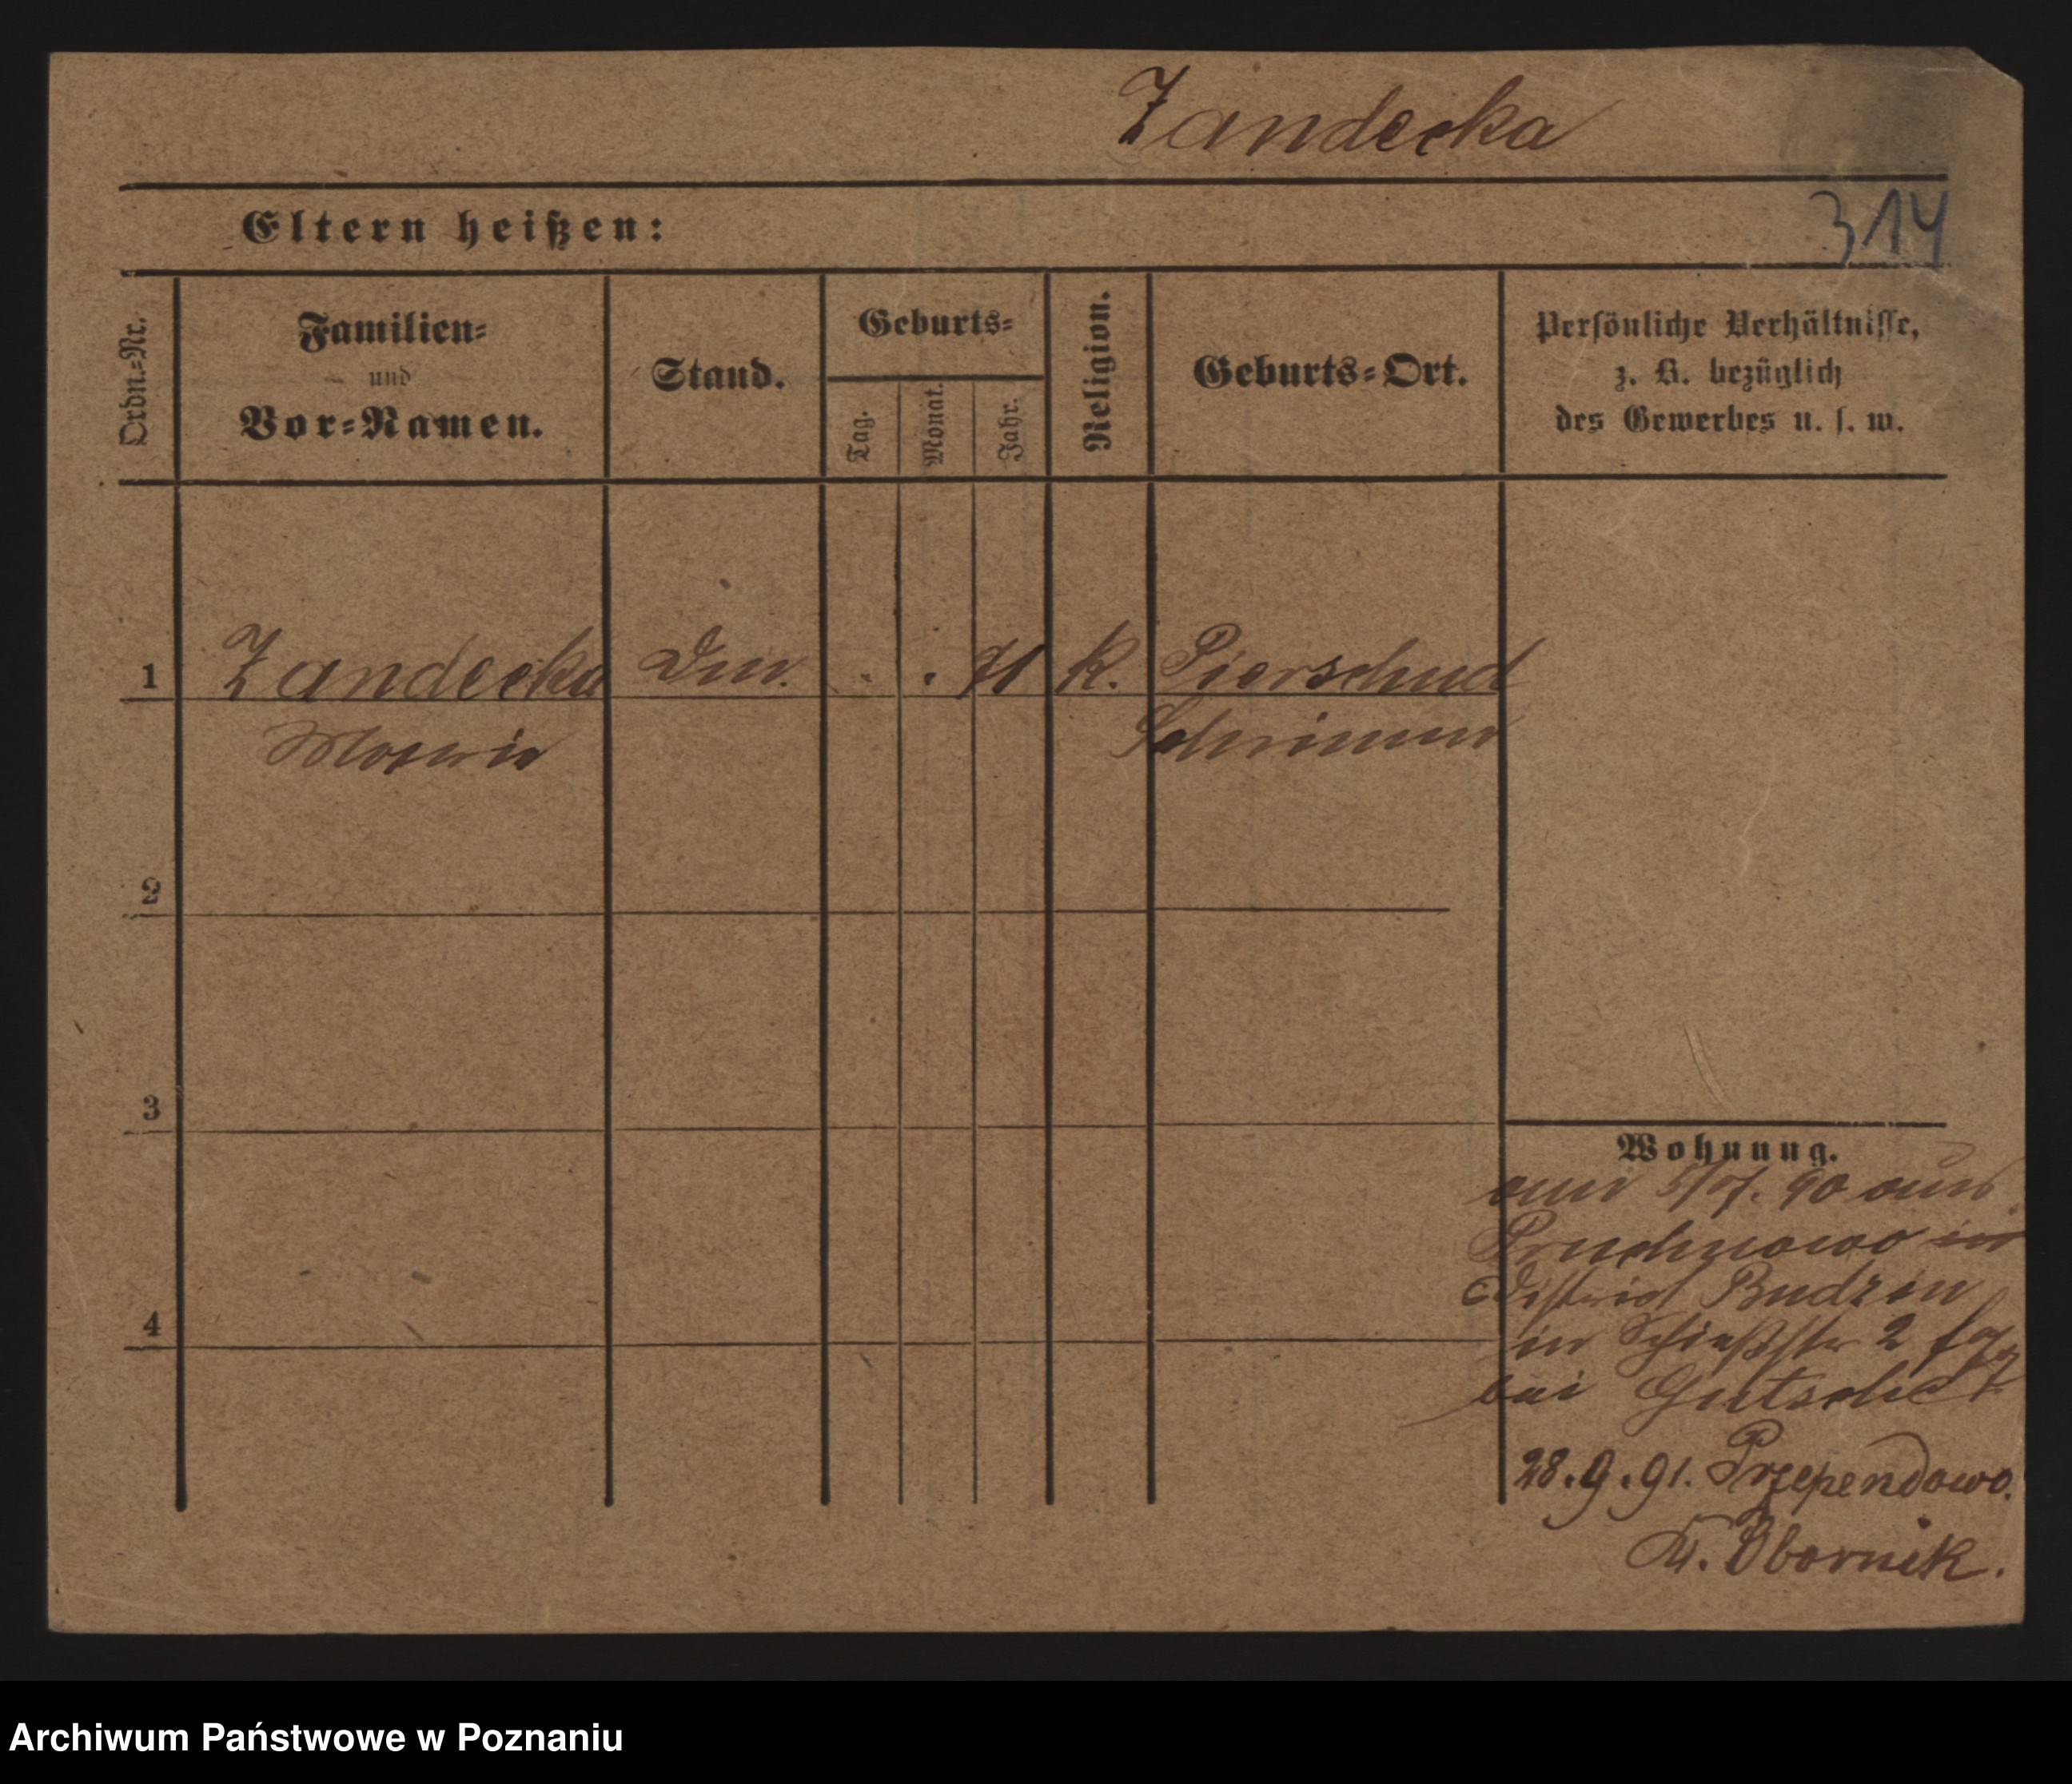 Zandecka
Eltern heißen:
314
Ordn.-Nr.
Familien-
und
Vor-Namen.
Stand.
Geburts-
Tag.
Monat.
Jahr.
Religion.
Geburts-Ort.
Persönliche Verhältnisse,
z. B. bezüglich
des Gewerbes u. s. w.
1 Zandecka k. Pierschud
Schrimm
2
3
4
Wohnung.
90 aus
Pruchnowo
District Budzin
in Schießstr 2
bei
28.9.91. Przependowo.
Kr. Obornik.
Archiwum Państwowe w Poznaniu